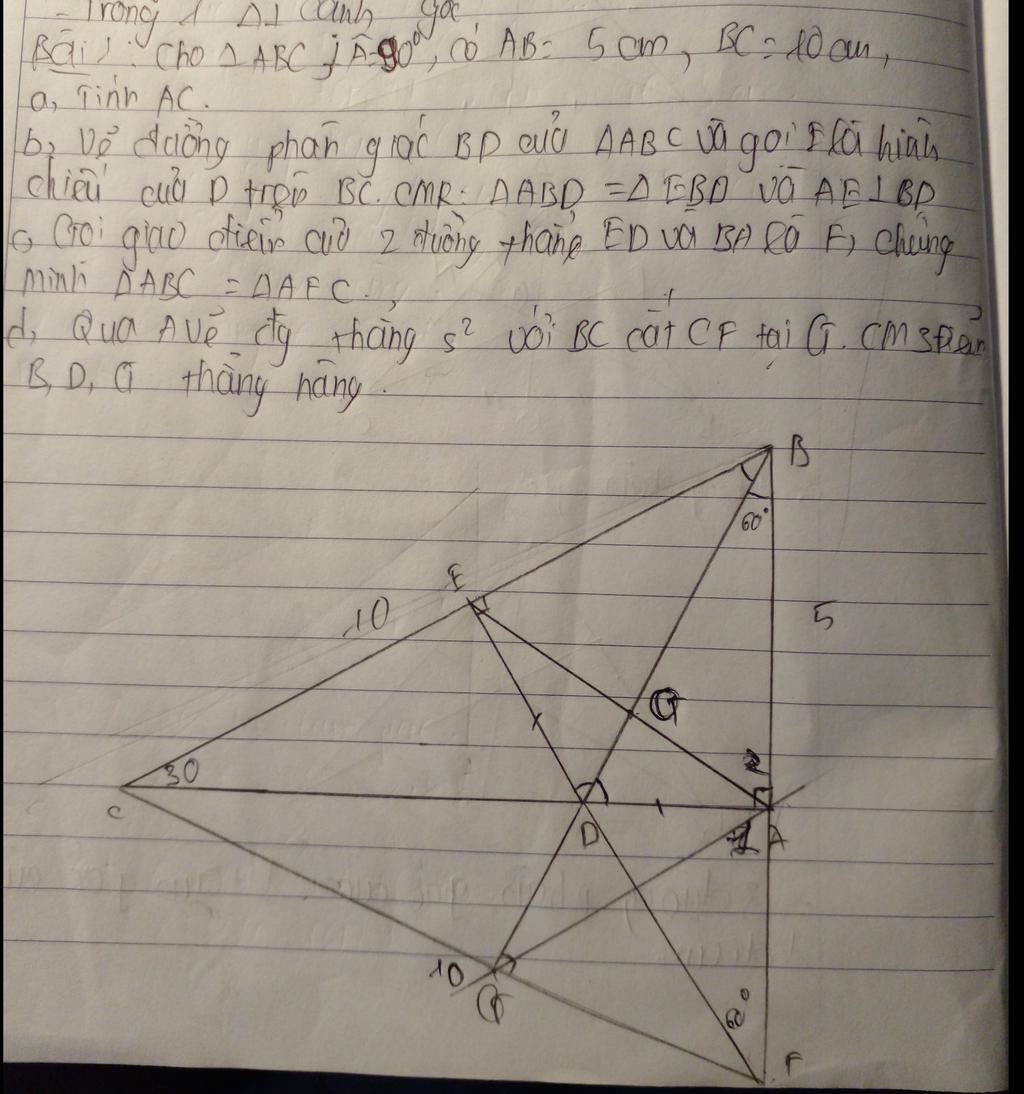 - Trong 1 Δ⊥ cạnh góc
Bài 1: Cho ΔABC; Â=90°, có AB= 5cm, BC=10cm,
a, Tính AC.
b, Vẽ đường phân giác BD của ΔABC và gọi E là hình
chiếu của D trên BC. CMR: ΔABD = ΔEBD và AE⊥BD
c, Gọi giao điểm của 2 đường thẳng ED và BA là F, chứng
minh ΔABC = ΔAFC.,
d, Qua A vẽ đg thẳng s² với BC cắt CF tại G. CM 3 điểm
B, D, G thẳng hàng.
B
60°
E
10
5
G
30
C
D
1 A
10
G
60°
F